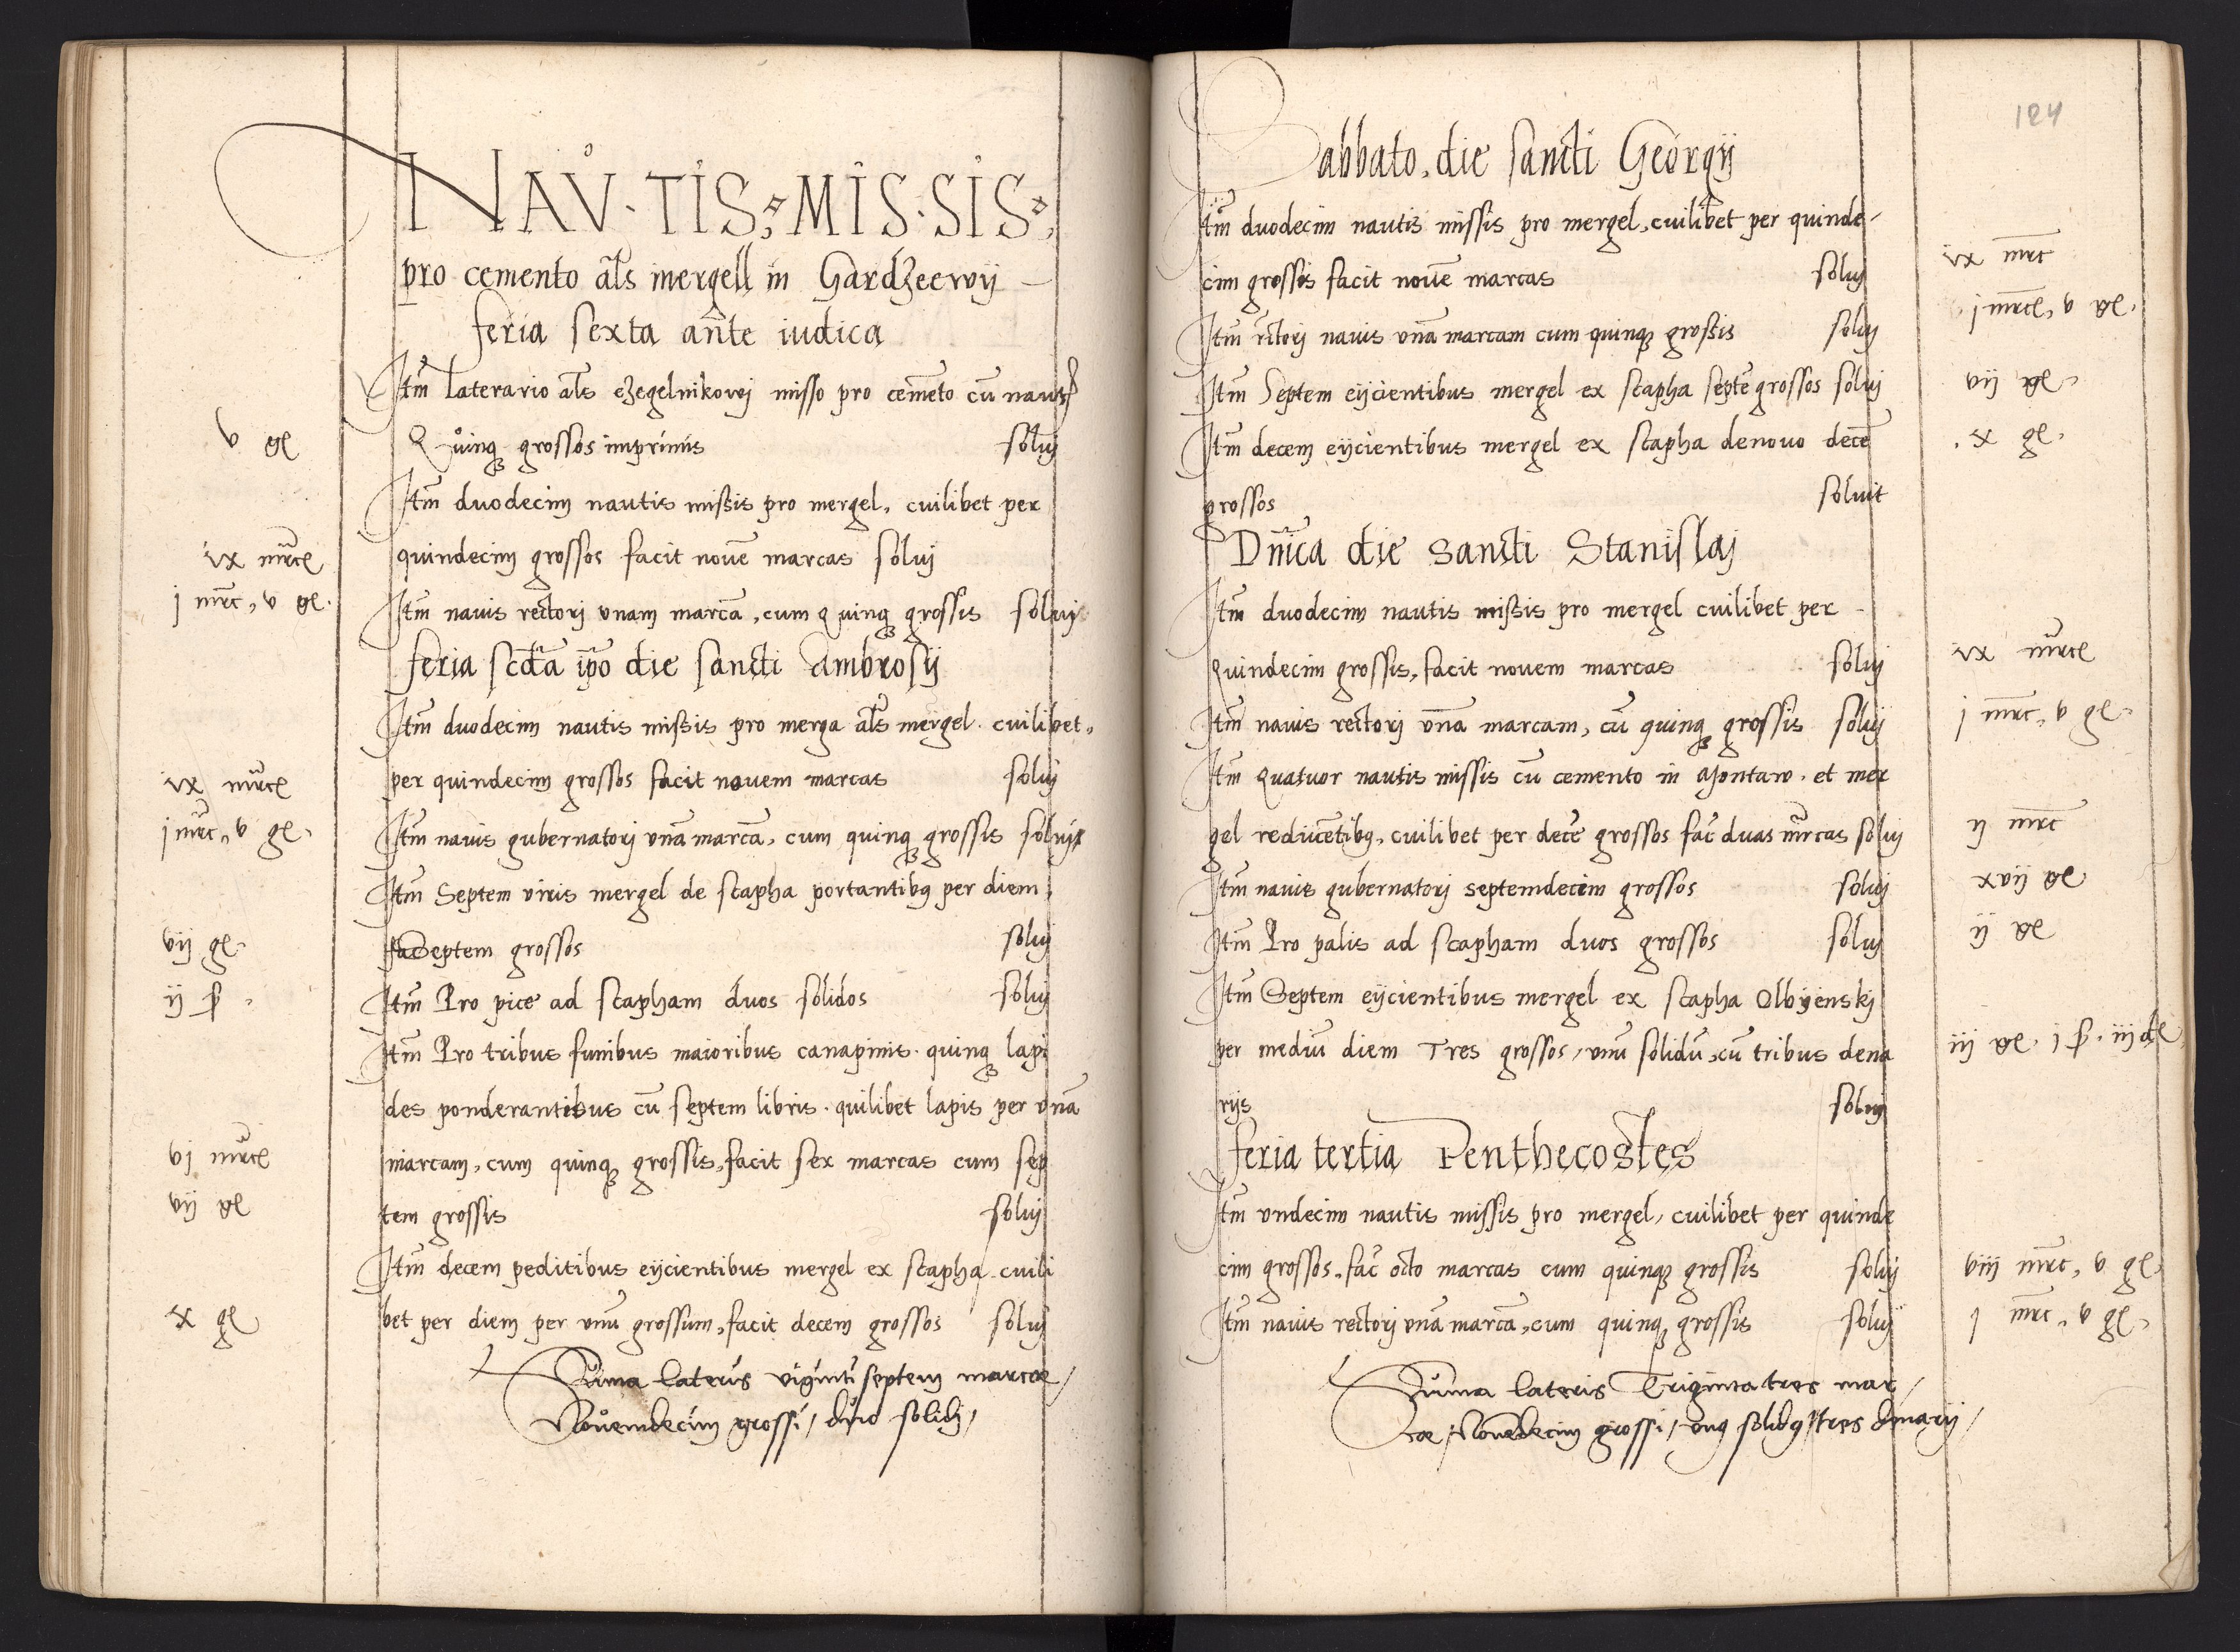 NAV·TIS; MIS·SIS;
pro cemento als mergell in Gardzeewij
feria sexta ante iudica
Itm Laterario als czegelnikowj misso pro cemeto cu nautis
v gl Quinq grossos imprimis soluj
Itm duodecim nautis missis pro mergel, cuilibet per
ix mrcl quindecim grossos facit noue marcas soluj
j mrc, v gl. Itm nauis rectorj vnam marca, cum quinq grossis soluj
feria scda ipo die sancti Ambrosij
Itm duodecim nautis missis pro merga als mergel. cuilibet,
ix mrcl per quindecim grossos facit nouem marcas soluj
j mrc, v gl. Itm nauis gubernatorj vna marca, cum quinq grossis soluj
Itm Septem viris mergel de scapha portantibq per diem,
vij gl. Septem grossos soluj
ij ſ. Itm Pro pice ad scapham duos solidos soluj
Itm Pro tribus funibus maioribus canapinis. quinq lapi
des ponderantibus cu septem libris. quilibet lapis per vna
vj mrcl marcam, cum quinq grossis, facit sex marcas cum sep
vij gl tem grossis soluj
Itm decem peditibus eijcientibus mergel ex scapha cuili
x gl bet per diem per vnu grossum, facit decem grossos soluj
Suma lateris viginti septem marcae /
Nouemdecim grossi / duo solidj /
124
Sabbato, die sancti Georgij
Itm duodecim nautis missis pro mergel, cuilibet per quinde-
cim grossos facit noue marcas soluj ix mrc
Itm rctorj nauis vna marcam cum quinq grossis soluj j mrcl, v gl.
Itm Septem eijcientibus mergel ex scapha septe grossos soluj vij gl.
Itm decem eijcientibus mergel ex scapha denouo dece . x gl.
grossos soluit
Dnica die sancti Stanislaj
Itm duodecim nautis missis pro mergel cuilibet per
Quindecim grossis, facit nouem marcas soluj ix mrcl
Itm nauis rectorj vna marcam, cu quinq grossis soluj j mrc, v gl.
Itm Quatuor nautis missis cu cemento in Montaw. et mer
gel reducetibq, cuilibet per dece grossos fac duas mrcas soluj ij mrc
Itm nauis gubernatorj septemdecim grossos soluj xvij gl
Itm Pro palis ad scapham duos grossos soluj ij gl
Itm Septem eijcientibus mergel ex scapha Olbyenskj
per mediu diem Tres grossos, vnu solidu, cu tribus dena iij gl. j ſ. iij dl
rijs soluj
feria tertia Penthecostes
Itm vndecim nautis missis pro mergel, cuilibet per quinde
cim grossos, fac octo marcas cum quinq grossis soluj viij mrc, v gl.
Itm nauis rectorj vna marca, cum quinq grossis soluj j mrc, v gl.
Suma lateris Triginta tres mar /
cae / Nouedecim grossi / vnq solidq / tres denarij /